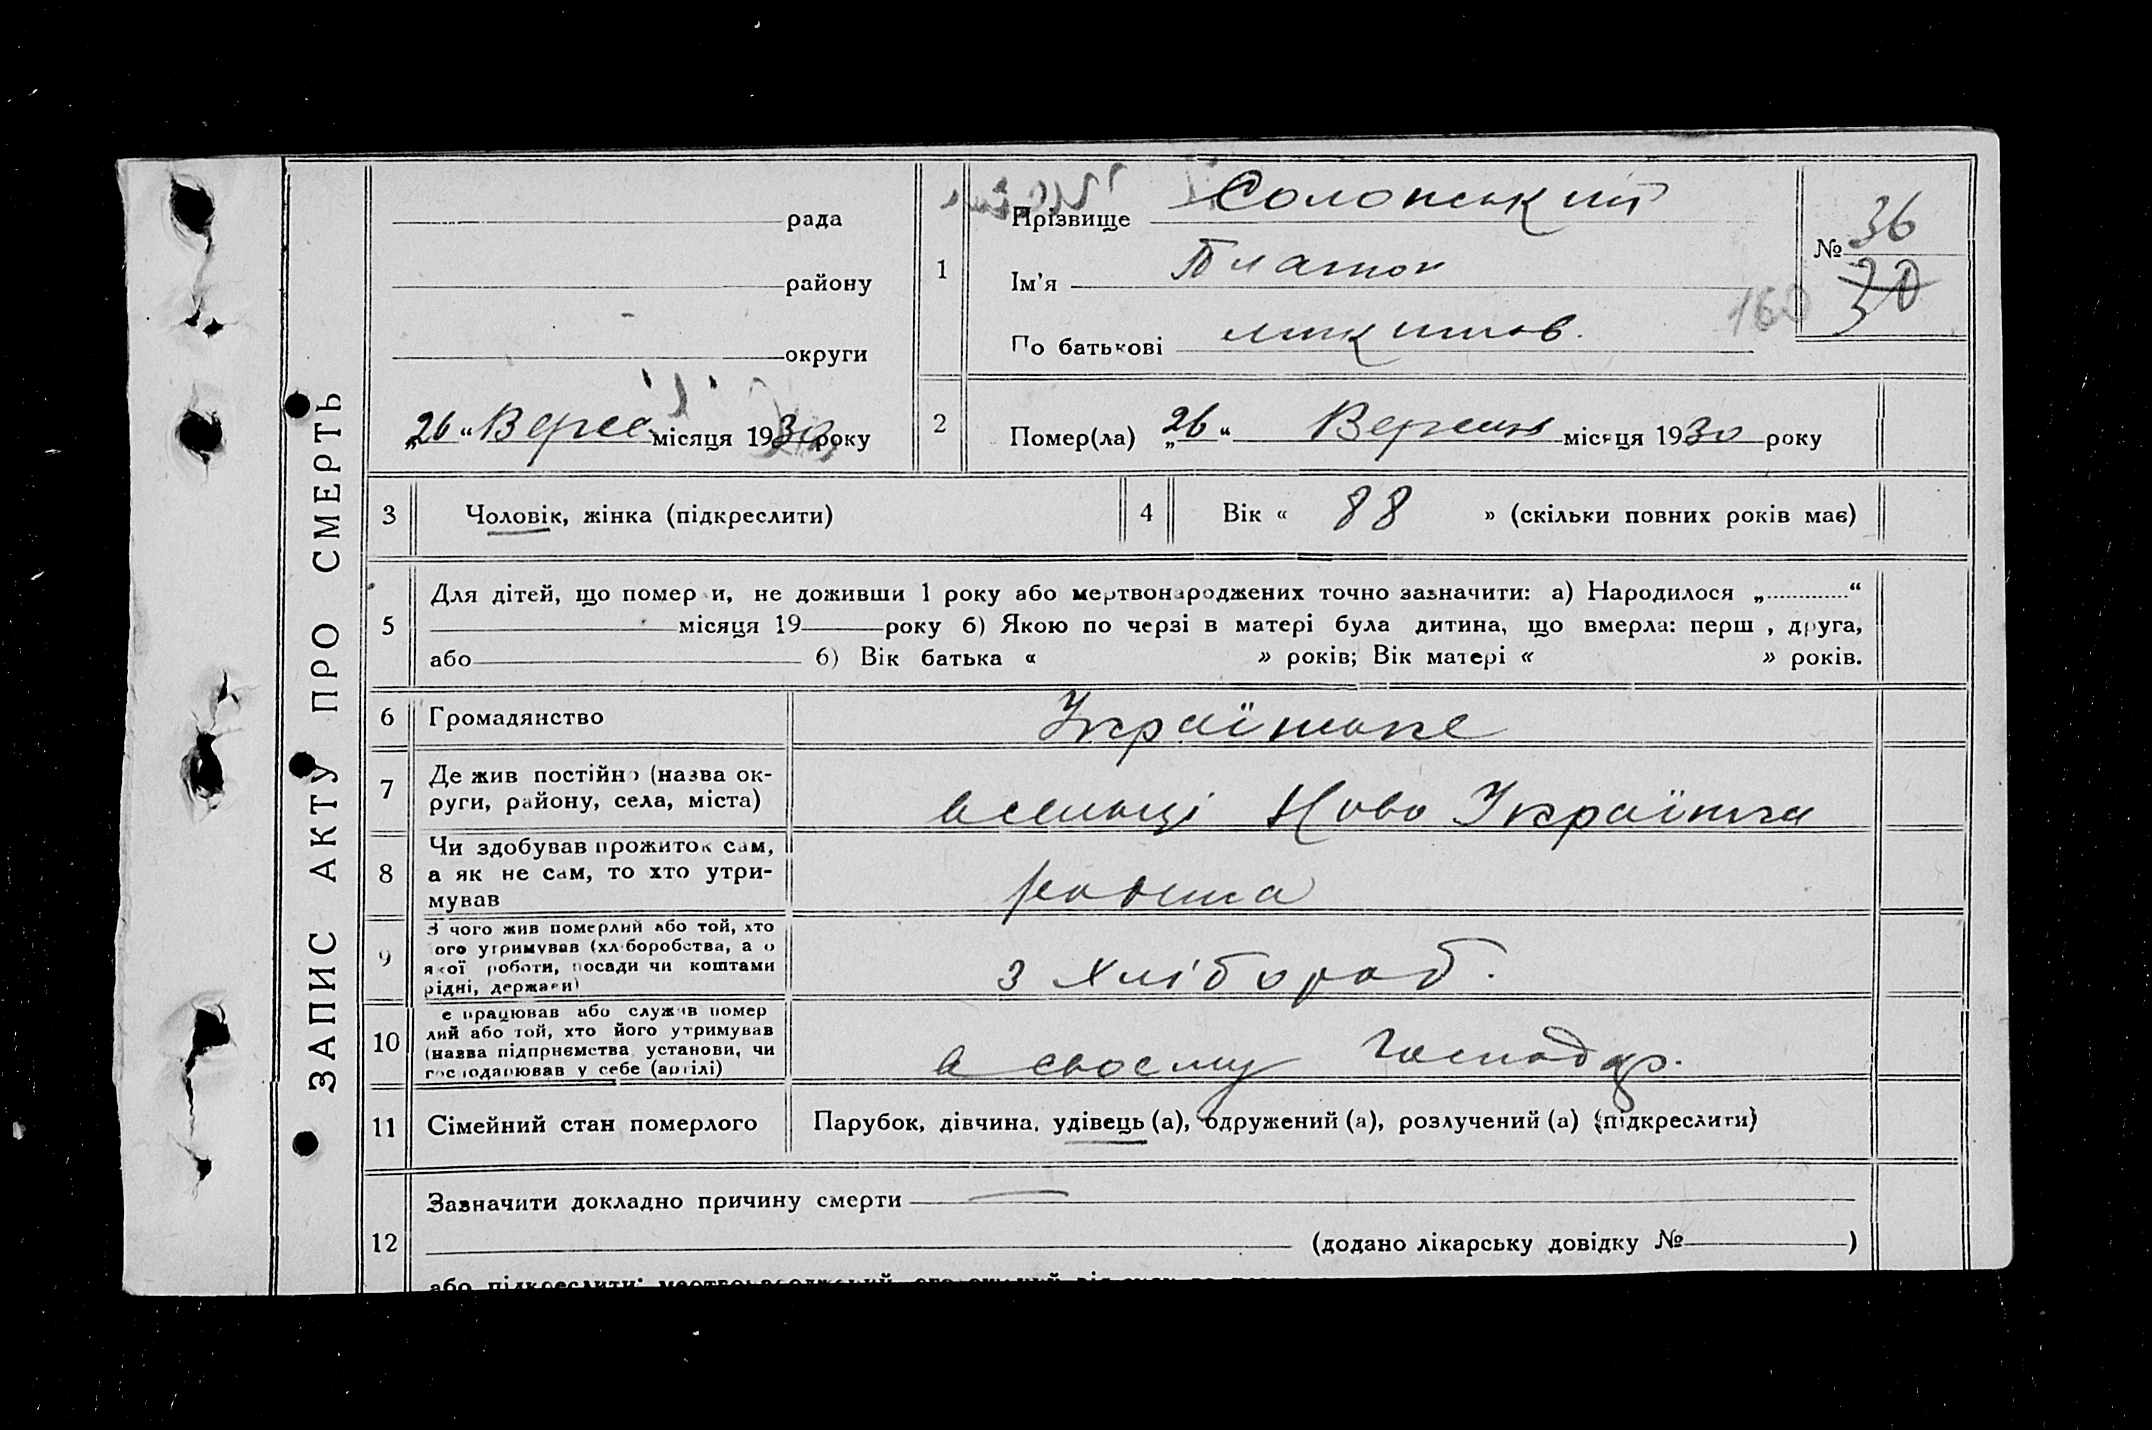 ЗАПИС АКТУ ПРО СМЕРТЬ
рада
району
округи
„26“ Вересн місяця 1930 року
1
Прізвище Солонський
Ім'я Платон
По батькові Микитов.
№ 36
30
160
2
Помер(ла) „26“ Вересня місяця 1930 року
3
Чоловік, жінка (підкреслити)
4
Вік « 88 » (скільки повних років має)
5
Для дітей, що помер и, не доживши 1 року або мертвонароджених точно зазначити: а) Народилося „............“
місяця 19 року б) Якою по черзі в матері була дитина, що вмерла: перш , друга,
або б) Вік батька « » років; Вік матері « » років.
6
Громадянство
Українське
7
Де жив постійно (назва ок-
руги, району, села, міста)
в селищі Ново Українка
8
Чи здобував прожиток сам,
а як не сам, то хто утри-
мував
родина
9
З чого жив померлий або той, хто
ого утримував (хл боробства, а о
якої роботи, посади чи коштами
рідні, держави)
з хлібороб.
10
е працював або служив помер
лий або той, хто його утримував
(назва підприємства установи, чи
господарював у себе (артілі)
в своєму господар.
11
Сімейний стан померлого
Парубок, дівчина, удівець (а), одружений (а), розлучений (а) (підкреслити)
12
Зазначити докладно причину смерти
(додано лікарську довідку № )
або підкреслити: